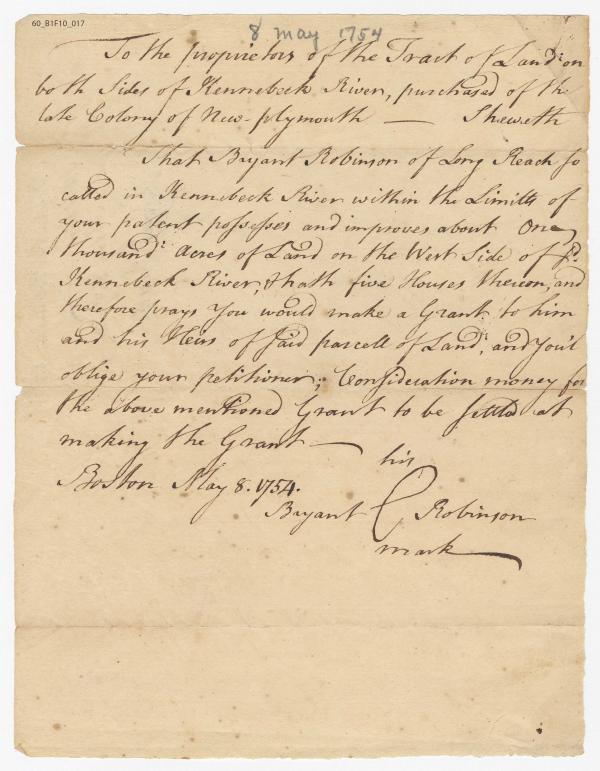 60_B1F10_017
8 May 1754
To the proprietors of the Tract of Land on
both Sides of Kennebeck River, purchased of the
late Colony of New-plymouth — Sheweth
That Bayant Robinson of Long Reach so
called in Kennebeck River within the Limitts of
your patent possesses and improves about One
thousand acres of Land on the West Side of sd.
Kennebeck River, & hath five Houses thereon, and
therefore prays You would make a Grant to him
and his Heirs of said parcell of Land, and You'l
oblige your petitioner; Consideration money for
the above mentioned Grant to be settled at
making the Grant —
Boston May 8. 1754.
his
Bayant Robinson
mark